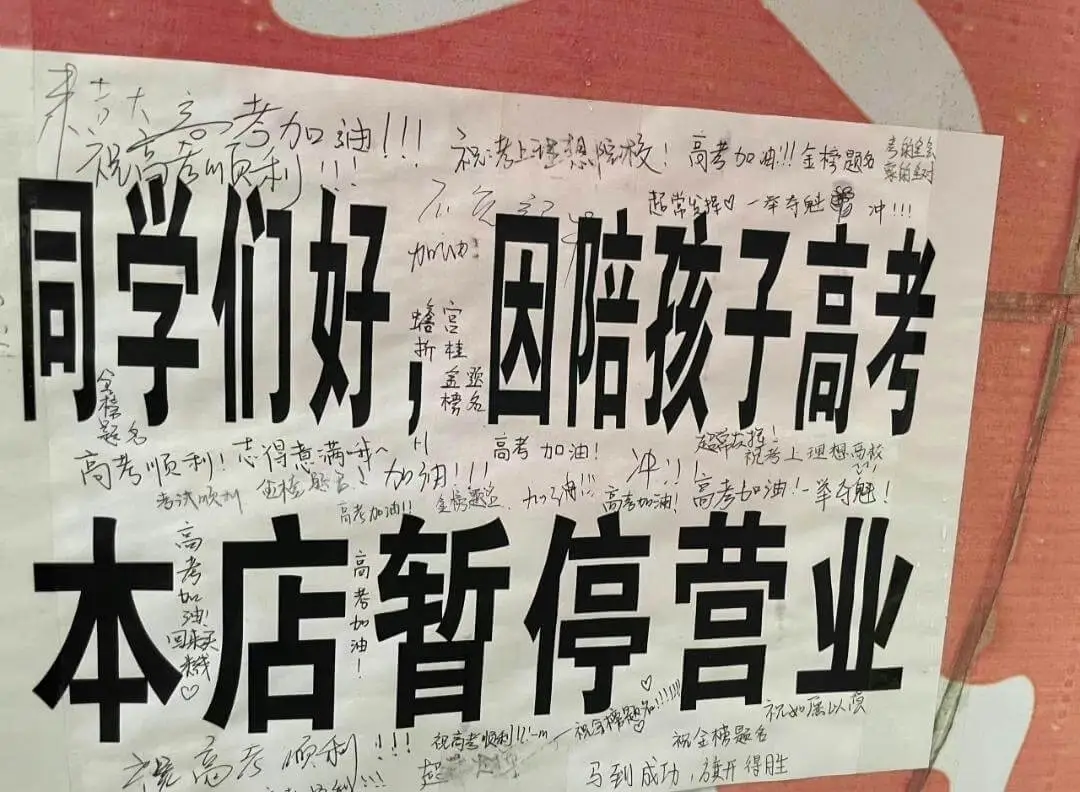 来吉大
高考加油!!!
祝高考顺利!!!
祝考上理想院校!
高考加油!!!金榜题名
超常发挥♡ 一举夺魁 冲!!!
加油!
同学们好,因陪孩子高考
蟾宫
折桂
金题
榜名
金榜题名
高考顺利!志得意满哦~
加油!!!
高考加油!
冲!!!
超常发挥!
祝考上理想高校
考试顺利
金榜题名!
高考加油!!
金榜题名
加油!!!
高考加油!
高考加油!一举夺魁!
本店暂停营业
高考加油!
高考加油!
祝高考顺利!!!
祝高考顺利!!!
祝金榜题名!!!!!!♡
祝如愿以偿
祝金榜题名
马到成功,旗开得胜